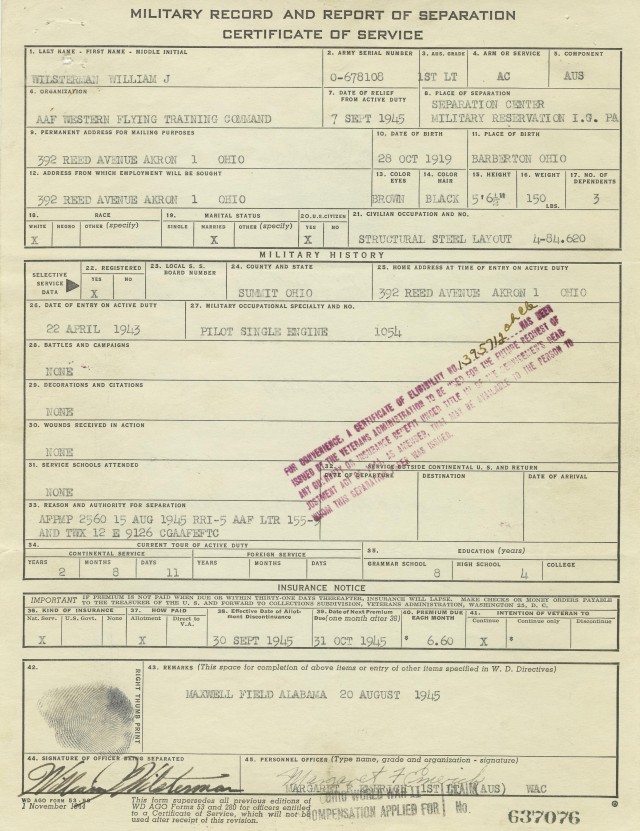 MILITARY RECORD AND REPORT OF SEPARATION
CERTIFICATE OF SERVICE
1. LAST NAME - FIRST NAME - MIDDLE INITIAL
WILSTERMAN WILLIAM J
2. ARMY SERIAL NUMBER
O-678108
3. AUS. GRADE
1ST LT
4. ARM OR SERVICE
AC
5. COMPONENT
AUS
6. ORGANIZATION
AAF WESTERN FLYING TRAINING COMMAND
7. DATE OF RELIEF FROM ACTIVE DUTY
7 SEPT 1945
8. PLACE OF SEPARATION
SEPARATION CENTER
MILITARY RESERVATION I.G. PA
9. PERMANENT ADDRESS FOR MAILING PURPOSES
392 REED AVENUE AKRON 1 OHIO
10. DATE OF BIRTH
28 OCT 1919
11. PLACE OF BIRTH
BARBERTON OHIO
12. ADDRESS FROM WHICH EMPLOYMENT WILL BE SOUGHT
392 REED AVENUE AKRON 1 OHIO
13. COLOR EYES
BROWN
14. COLOR HAIR
BLACK
15. HEIGHT
5'6½"
16. WEIGHT
150 LBS.
17. NO. OF DEPENDENTS
3
18. RACE
WHITE NEGRO OTHER (specify)
X
19. MARITAL STATUS
SINGLE MARRIED OTHER (specify)
X
20. U.S. CITIZEN
YES NO
X
21. CIVILIAN OCCUPATION AND NO.
STRUCTURAL STEEL LAYOUT 4-84.620
MILITARY HISTORY
SELECTIVE SERVICE DATA
22. REGISTERED
YES NO
X
23. LOCAL S. S. BOARD NUMBER
24. COUNTY AND STATE
SUMMIT OHIO
25. HOME ADDRESS AT TIME OF ENTRY ON ACTIVE DUTY
392 REED AVENUE AKRON 1 OHIO
26. DATE OF ENTRY ON ACTIVE DUTY
22 APRIL 1943
27. MILITARY OCCUPATIONAL SPECIALTY AND NO.
PILOT SINGLE ENGINE 1054
28. BATTLES AND CAMPAIGNS
NONE
29. DECORATIONS AND CITATIONS
NONE
30. WOUNDS RECEIVED IN ACTION
NONE
31. SERVICE SCHOOLS ATTENDED
NONE
FOR CONVENIENCE, A CERTIFICATE OF ELIGIBILITY NO. HAS BEEN
ISSUED BY THE VETERANS ADMINISTRATION TO BE FOR THE FUTURE REQUEST OF
ANY GUARANTY OR INSURANCE BENEFIT UNDER TITLE III OF THE SERVICEMEN'S READ-
JUSTMENT ACT OF AS AMENDED, THAT MAY BE AVAILABLE TO THE PERSON TO
WHOM THIS SEPARATION WAS ISSUED.
32. SERVICE OUTSIDE CONTINENTAL U. S. AND RETURN
DATE OF DEPARTURE DESTINATION DATE OF ARRIVAL
33. REASON AND AUTHORITY FOR SEPARATION
AFPMP 2560 15 AUG 1945 RRI-5 AAF LTR 155-
AND TWX 12 E 9126 CGAAFEFTC
34. CURRENT TOUR OF ACTIVE DUTY
CONTINENTAL SERVICE FOREIGN SERVICE
YEARS MONTHS DAYS YEARS MONTHS DAYS
2 8 11
35. EDUCATION (years)
GRAMMAR SCHOOL HIGH SCHOOL COLLEGE
8 4
INSURANCE NOTICE
IMPORTANT IF PREMIUM IS NOT PAID WHEN DUE OR WITHIN THIRTY-ONE DAYS THEREAFTER, INSURANCE WILL LAPSE. MAKE CHECKS OR MONEY ORDERS PAYABLE
TO THE TREASURER OF THE U. S. AND FORWARD TO COLLECTIONS SUBDIVISION, VETERANS ADMINISTRATION, WASHINGTON 25, D. C.
36. KIND OF INSURANCE
Nat. Serv. U.S. Govt. None
X
37. HOW PAID
Allotment Direct to V.A.
X
38. Effective Date of Allotment Discontinuance
30 SEPT 1945
39. Date of Next Premium Due (one month after 38)
31 OCT 1945
40. PREMIUM DUE EACH MONTH
$ 6.60
41. INTENTION OF VETERAN TO
Continue Continue only Discontinue
X $
42.
RIGHT THUMB PRINT
43. REMARKS (This space for completion of above items or entry of other items specified in W. D. Directives)
MAXWELL FIELD ALABAMA 20 AUGUST 1945
44. SIGNATURE OF OFFICER BEING SEPARATED
William J Wilsterman
45. PERSONNEL OFFICER (Type name, grade and organization - signature)
Margaret F Emerich
MARGARET F EMERICH 1ST LT (AUS) WAC
WD AGO FORM 53-98
1 November 1944
This form supersedes all previous editions of
WD AGO Forms 53 and 280 for officers entitled
to a Certificate of Service, which will not be
used after receipt of this revision.
OHIO WORLD WAR II
COMPENSATION APPLIED FOR No.
637076